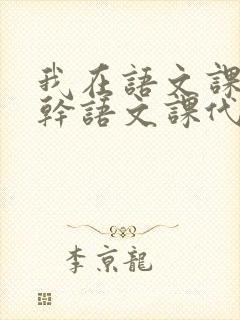 我在語文課
幹語文課代
李京龍